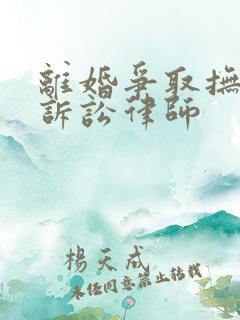 離婚爭取撫
訴訟律師
楊天成
未經同意禁止轉載